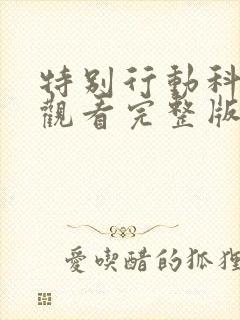 特別行動科
觀看完整版
愛喫醋的狐狸